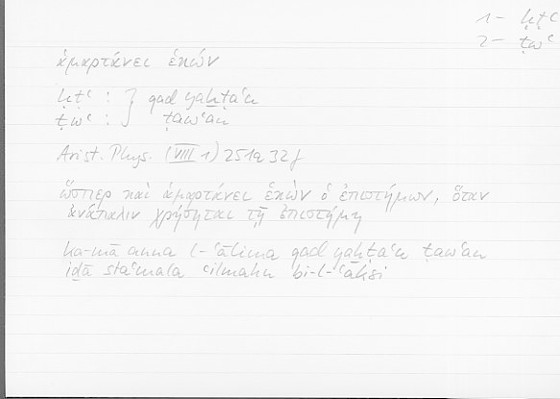 1 – ḫṭʾ
2 – ṭwʿ
ἁμαρτάνει ἑκών
ḫṭʾ : } qad yaḫṭaʾu
ṭwʿ : } ṭawʿan
Arist. Phys. (VIII 1) 251a32f
ὥσπερ καὶ ἁμαρτάνει ἑκὼν ὁ ἐπιστήμων, ὅταν
ἀνάπαλιν χρήσηται τῇ ἐπιστήμῃ
ka-mā anna l-ʿālima qad yaḫṭaʾu ṭawʿan
iḏā staʿmala ʿilmahu bi-l-ʿaksi